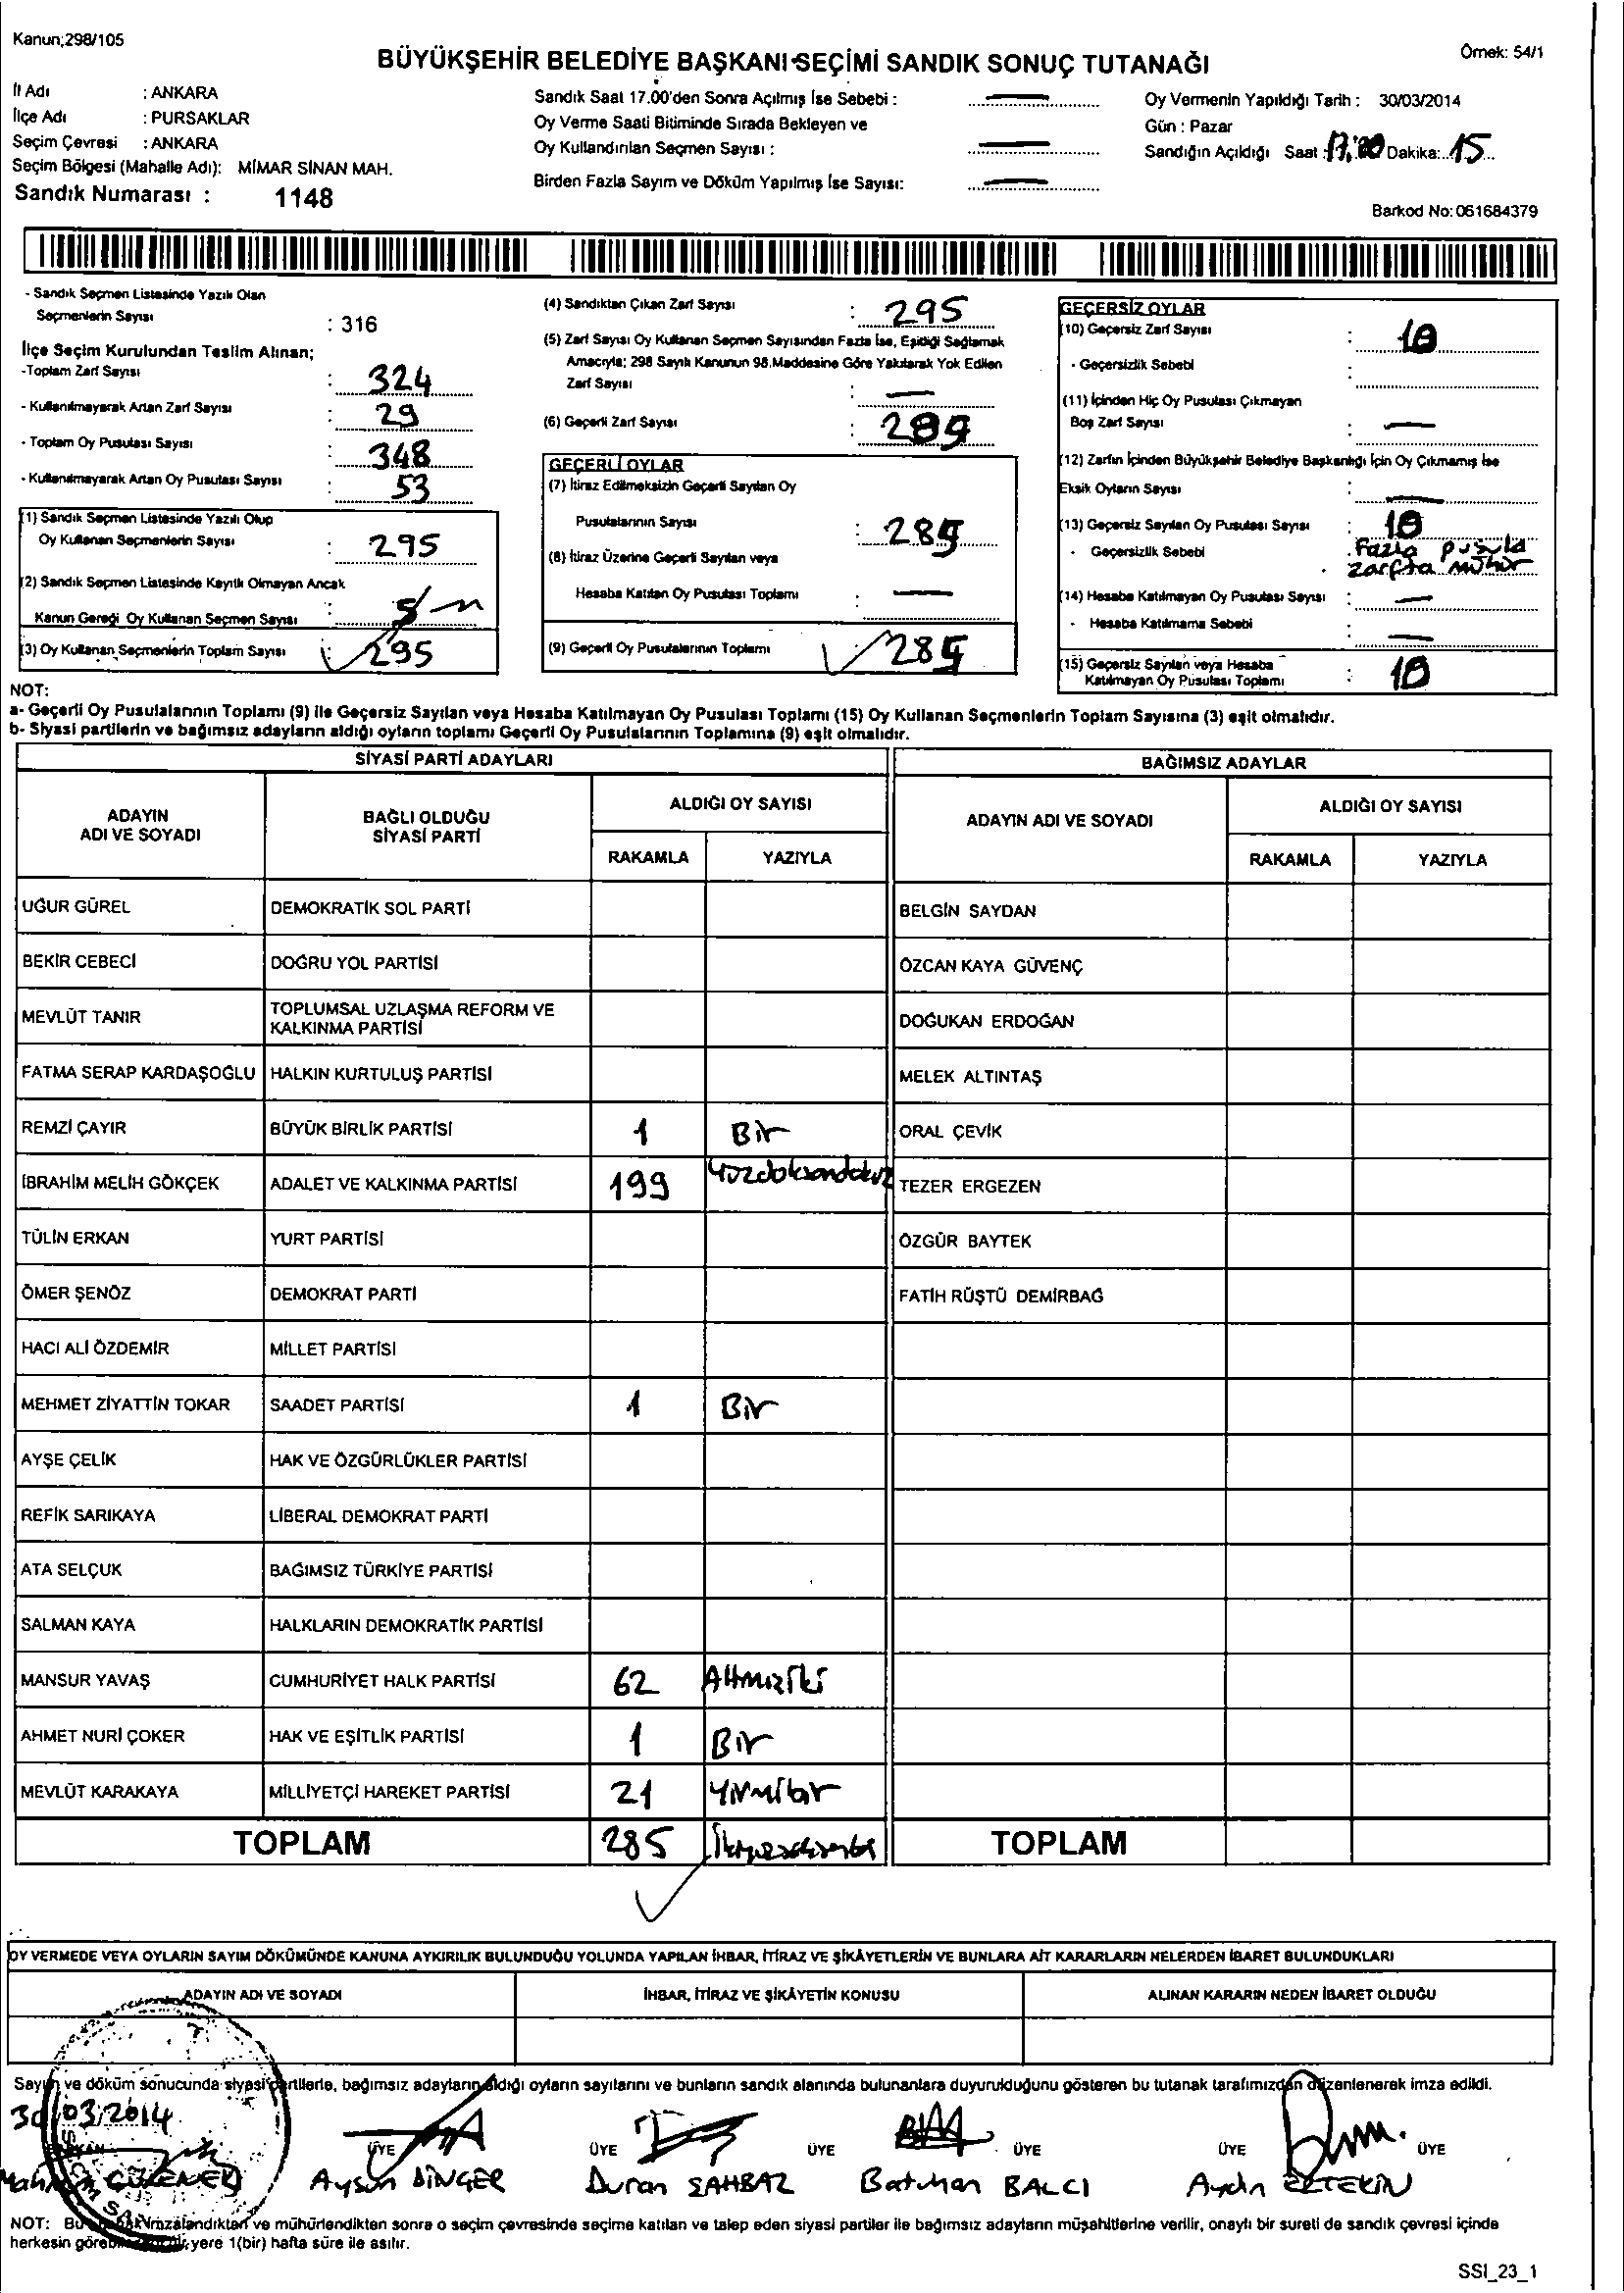 Kanun;298/105
BÜYÜKŞEHİR BELEDİYE BAŞKANI SEÇİMİ SANDIK SONUÇ TUTANAĞI
Örnek: 54/1
İl Adı : ANKARA
İlçe Adı : PURSAKLAR
Seçim Çevresi : ANKARA
Seçim Bölgesi (Mahalle Adı): MİMAR SİNAN MAH.
Sandık Numarası : 1148
Sandık Saat 17.00'den Sonra Açılmış İse Sebebi : —
Oy Verme Saati Bitiminde Sırada Bekleyen ve
Oy Kullandırılan Seçmen Sayısı : —
Birden Fazla Sayım ve Döküm Yapılmış İse Sayısı: —
Oy Vermenin Yapıldığı Tarih : 30/03/2014
Gün : Pazar
Sandığın Açıldığı Saat : 17:00 Dakika: 15
Barkod No: 061684379
- Sandık Seçmen Listesinde Yazılı Olan
Seçmenlerin Sayısı : 316
İlçe Seçim Kurulundan Teslim Alınan;
-Toplam Zarf Sayısı : 324
- Kullanılmayarak Artan Zarf Sayısı : 29
- Toplam Oy Pusulası Sayısı : 348
- Kullanılmayarak Artan Oy Pusulası Sayısı : 53
(1) Sandık Seçmen Listesinde Yazılı Olup
Oy Kullanan Seçmenlerin Sayısı : 295
(2) Sandık Seçmen Listesinde Kayıtlı Olmayan Ancak
Kanun Gereği Oy Kullanan Seçmen Sayısı :
(3) Oy Kullanan Seçmenlerin Toplam Sayısı : 295
(4) Sandıktan Çıkan Zarf Sayısı : 295
(5) Zarf Sayısı Oy Kullanan Seçmen Sayısından Fazla İse, Eşitliği Sağlamak
Amacıyla; 298 Sayılı Kanunun 98.Maddesine Göre Yakılarak Yok Edilen
Zarf Sayısı : —
(6) Geçerli Zarf Sayısı :
GEÇERLİ OYLAR
(7) İtiraz Edilmeksizin Geçerli Sayılan Oy
Pusulalarının Sayısı : 285
(8) İtiraz Üzerine Geçerli Sayılan veya
Hesaba Katılan Oy Pusulası Toplamı : —
(9) Geçerli Oy Pusulalarının Toplamı : 285
GEÇERSİZ OYLAR
(10) Geçersiz Zarf Sayısı : 10
- Geçersizlik Sebebi :
(11) İçinden Hiç Oy Pusulası Çıkmayan
Boş Zarf Sayısı : —
(12) Zarfın İçinden Büyükşehir Belediye Başkanlığı İçin Oy Çıkmamış İse
Eksik Oyların Sayısı : —
(13) Geçersiz Sayılan Oy Pusulası Sayısı : 10
- Geçersizlik Sebebi : Fazla pusula
zarfta mühür
(14) Hesaba Katılmayan Oy Pusulası Sayısı : —
- Hesaba Katılmama Sebebi : —
(15) Geçersiz Sayılan veya Hesaba
Katılmayan Oy Pusulası Toplamı : 10
NOT:
a- Geçerli Oy Pusulalarının Toplamı (9) ile Geçersiz Sayılan veya Hesaba Katılmayan Oy Pusulası Toplamı (15) Oy Kullanan Seçmenlerin Toplam Sayısına (3) eşit olmalıdır.
b- Siyasi partilerin ve bağımsız adayların aldığı oyların toplamı Geçerli Oy Pusulalarının Toplamına (9) eşit olmalıdır.
SİYASİ PARTİ ADAYLARI
BAĞIMSIZ ADAYLAR
ADAYIN ADI VE SOYADI
BAĞLI OLDUĞU SİYASİ PARTİ
ALDIĞI OY SAYISI
RAKAMLA YAZIYLA
ADAYIN ADI VE SOYADI
ALDIĞI OY SAYISI
RAKAMLA YAZIYLA
UĞUR GÜREL DEMOKRATİK SOL PARTİ BELGİN SAYDAN
BEKİR CEBECİ DOĞRU YOL PARTİSİ ÖZCAN KAYA GÜVENÇ
MEVLÜT TANIR TOPLUMSAL UZLAŞMA REFORM VE KALKINMA PARTİSİ DOĞUKAN ERDOĞAN
FATMA SERAP KARDAŞOĞLU HALKIN KURTULUŞ PARTİSİ MELEK ALTINTAŞ
REMZİ ÇAYIR BÜYÜK BİRLİK PARTİSİ 1 Bir ORAL ÇEVİK
İBRAHİM MELİH GÖKÇEK ADALET VE KALKINMA PARTİSİ 199 Yüzdoksandokuz TEZER ERGEZEN
TÜLİN ERKAN YURT PARTİSİ ÖZGÜR BAYTEK
ÖMER ŞENÖZ DEMOKRAT PARTİ FATİH RÜŞTÜ DEMİRBAĞ
HACI ALİ ÖZDEMİR MİLLET PARTİSİ
MEHMET ZİYATTİN TOKAR SAADET PARTİSİ 1 Bir
AYŞE ÇELİK HAK VE ÖZGÜRLÜKLER PARTİSİ
REFİK SARIKAYA LİBERAL DEMOKRAT PARTİ
ATA SELÇUK BAĞIMSIZ TÜRKİYE PARTİSİ
SALMAN KAYA HALKLARIN DEMOKRATİK PARTİSİ
MANSUR YAVAŞ CUMHURİYET HALK PARTİSİ 62 Altmışiki
AHMET NURİ ÇOKER HAK VE EŞİTLİK PARTİSİ 1 Bir
MEVLÜT KARAKAYA MİLLİYETÇİ HAREKET PARTİSİ 21 Yirmibir
TOPLAM 285 TOPLAM
OY VERMEDE VEYA OYLARIN SAYIM DÖKÜMÜNDE KANUNA AYKIRILIK BULUNDUĞU YOLUNDA YAPILAN İHBAR, İTİRAZ VE ŞİKÂYETLERİN VE BUNLARA AİT KARARLARIN NELERDEN İBARET BULUNDUKLARI
ADAYIN ADI VE SOYADI İHBAR, İTİRAZ VE ŞİKÂYETİN KONUSU ALINAN KARARIN NEDEN İBARET OLDUĞU
Sayım ve döküm sonucunda siyasi partilerle, bağımsız adayların aldığı oyların sayılarını ve bunların sandık alanında bulunanlara duyurulduğunu gösteren bu tutanak tarafımızdan düzenlenerek imza edildi.
30/03/2014
ÜYE ÜYE ÜYE ÜYE ÜYE ÜYE
Aysun DİNÇER Duran ŞAHBAZ Batuhan BALCI Aydın
NOT: Bu imzalandıktan ve mühürlendikten sonra o seçim çevresinde seçime katılan ve talep eden siyasi partiler ile bağımsız adayların müşahitlerine verilir, onaylı bir sureti de sandık çevresi içinde
herkesin yere 1(bir) hafta süre ile asılır.
SSI_23_1